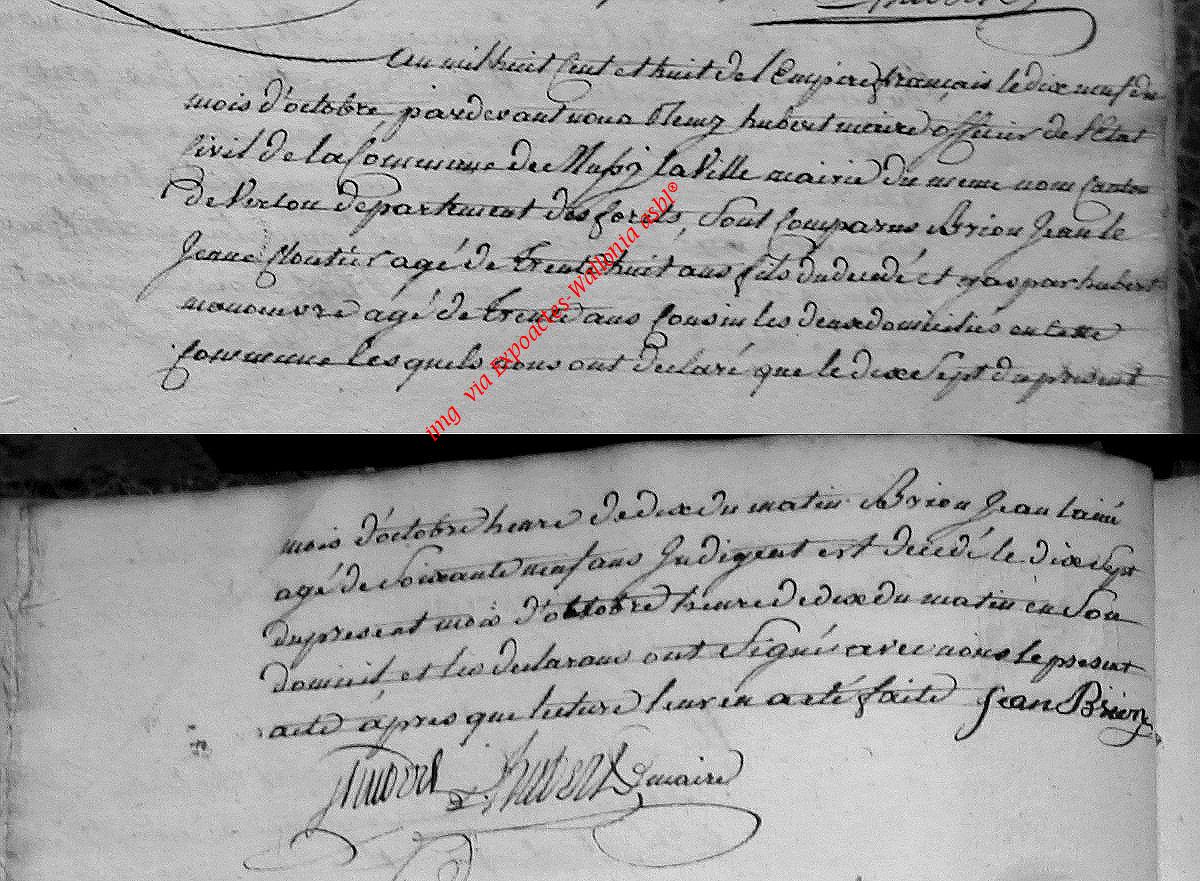 an mil huit Cent et huit de l'Empire français le dix neuf du
mois d'octobre, pardevant nous hubert maire officier de l'Etat
Civil de la Commune de Mussy la Ville mairie du meme nom Canton
De Virton departement des forets, sont Comparus Brion Jean le
Jeune Cloutier agé de trente huit ans fils du decedé et gaspar hubert
manoeuvre agé de trente ans Cousin les deux domiciliés en Cette
Commune les quels nous ont declaré que le dix Sept du present
mois d'octobre heure de dix du matin Brion Jean lainé
agé de Soixante neuf ans Indigent est decedé le dix Sept
du present mois d'octobre heure de dix du matin en Son
domicil, et les declarans ont Signé avec nous le present
acte apres que lecture leur en a eté faite Jean Brion
hubert maire
img via Expoactes-Wallonia asbl®